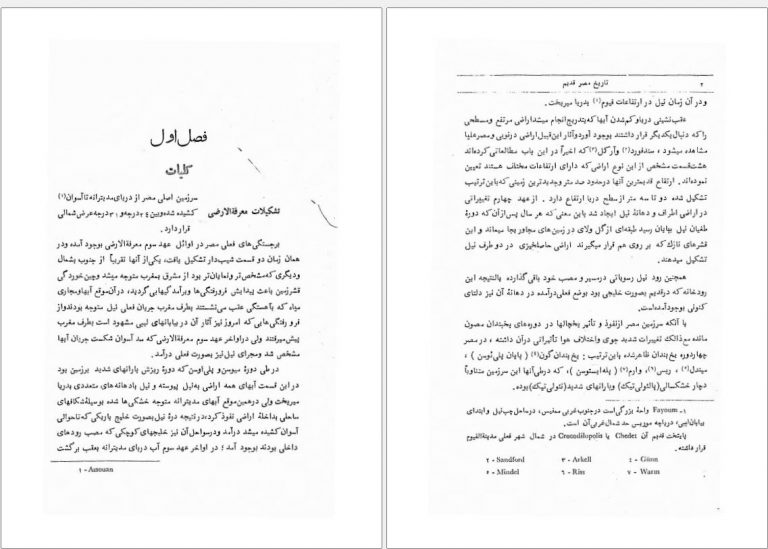 فصل اول
کلیات
تشکیلات معرفة‌الارضی
سرزمین اصلی مصر از دریای مدیترانه تا آسوان(۱)
کشیده شده و بین ۲۴ درجه و ۳۰ درجه عرض شمالی
قرار دارد.
برجستگی‌های فعلی مصر در اوائل عهد سوم معرفة‌الارضی بوجود آمده و در
همان زمان دو قسمت شیب‌دار تشکیل یافت، یکی از آنها تقریباً از جنوب بشمال
و دیگری که مشخص‌تر و نمایان‌تر بود از مشرق بمغرب متوجه میشد و چین خوردگی
قشر زمین باعث پیدایش فرورفتگی‌ها و برآمدگیهایی گردید، در آن موقع آبها و مجاری
میاه که بآهستگی عقب می‌نشستند بطرف مغرب جریان فعلی نیل متوجه بودند و از
فرورفتگی‌هایی که امروز نیز آثار آن در بیابانهای لیبی مشهود است بطرف مغرب
پیش میرفتند ولی در اواخر عهد سوم معرفة‌الارضی که سد آسوان شکست جریان آبها
مشخص شد و مجرای نیل نیز بصورت فعلی درآمد.
در طی دورهٔ میوسن و پلی‌اوسن که دورهٔ ریزش بارانهای شدید برزمین بود
در این قسمت آبهای همه اراضی به نیل پیوسته و نیل با دهانه‌های متعددی بدریا
میریخت ولی در همین موقع آبهای مدیترانه متوجه خشکی‌ها شده بوسیلهٔ شکافهای
ساحلی بداخلهٔ اراضی نفوذ کرد، در نتیجه درهٔ نیل بصورت خلیج باریکی که تا حوالی
آسوان کشیده میشد درآمد و در سواحل آن نیز خلیجهای کوچکی که مصب رودهای
داخلی بودند بوجود آمد؛ در اواخر عهد سوم آب دریای مدیترانه بعقب برگشت
۱ - Assouan
۲ تاریخ مصر قدیم
و در آن زمان نیل در ارتفاعات فیوم(۱) بدریا میریخت.
عقب‌نشینی دریا و کم‌شدن آبها که بتدریج انجام میشد اراضی مرتفع و مسطحی
را که دنبال یکدیگر قرار داشتند بوجود آورد و آثار این قبیل اراضی در نوبی و مصر علیا
مشاهده میشود، سندفورد(۲) و آرکل(۳) که اخیراً در این باب مطالعاتی کرده‌اند
هشت قسمت مشخص از این نوع اراضی که دارای ارتفاعات مختلف هستند تعیین
نموده‌اند. ارتفاع قدیمترین آنها در حدود صد متر و جدیدترین زمینی که باین ترتیب
تشکیل شده دو تا سه متر از سطح دریا ارتفاع دارد. از عهد چهارم تغییراتی
در اراضی اطراف و دهانهٔ نیل ایجاد شد باین معنی که هر سال پس از آن که دورهٔ
طغیان نیل بپایان رسید طبقه‌ای از گل ولای در زمین‌های مجاور بجا میماند و این
قشرهای نازک که بر روی هم قرار میگیرند اراضی حاصلخیزی در دو طرف نیل
تشکیل میدهند.
همچنین رود نیل رسوباتی در مسیر و مصب خود باقی گذارده بالنتیجه این
رودخانه که در قدیم بصورت خلیجی بود بوضع فعلی درآمده در دهانهٔ آن نیز دلتای
کنونی بوجود آمده است.
با آنکه سرزمین مصر از نفوذ و تأثیر یخچالها در دوره‌های یخبندان مصون
مانده مع‌ذالک تغییرات شدید جوی و اختلاف هوا تأثیراتی در آن داشته، در مصر
چهار دوره یخ‌بندان ظاهر شده باین ترتیب: یخ‌بندان گون(۴) (پایان پلی‌ئوسن)،
میندل(۵)، ریس(۶)، و ارم(۷) (پله‌ایستوسن)، که در طی آنها این سرزمین متناوباً
دچار خشکسالی (پالئولی‌تیک) و بارانهای شدید (نئولی‌تیک) بوده.
۱ـ Fayoum واحهٔ بزرگی است در جنوب غربی ممفیس، در ساحل چپ نیل و ابتدای
بیابان لیبی، دریاچه موریس حد شمال غربی آن است.
پایتخت قدیم آن Chedet یا Crocodilopolis در شمال شهر فعلی مدینة‌الفیوم
قرار داشته.
۲ - Sandford ۳ - Arkell ٤ - Günn
۵ - Mindel ٦ - Riss ۷ - Warm